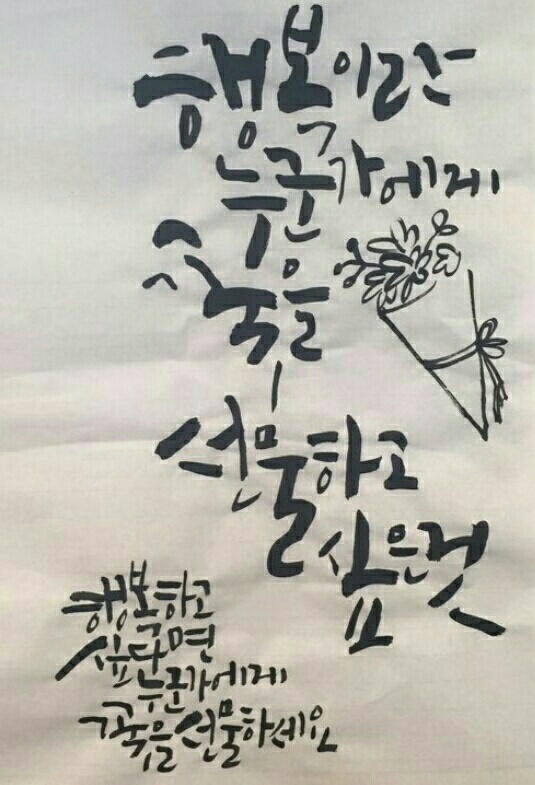 행복이란
누군가에게
꽃을
선물하고
싶은것
행복하고
싶다면
누군가에게
꽃을 선물하세요